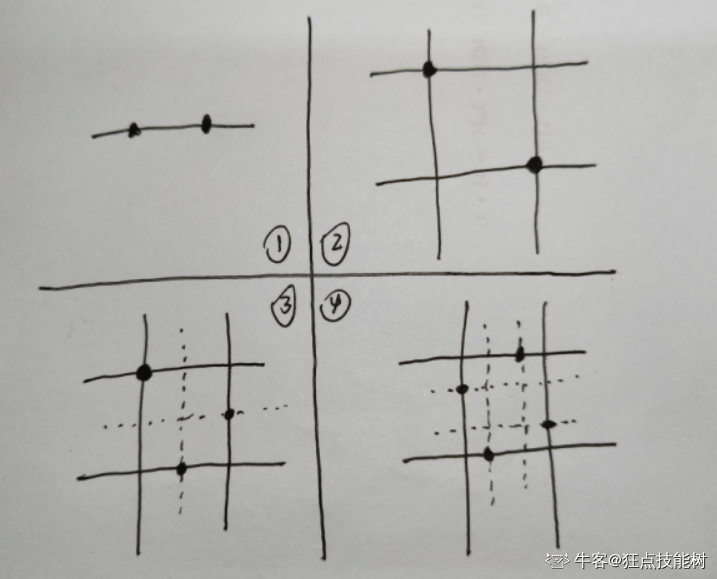 ① ②
③ ④
牛客@狂点技能树